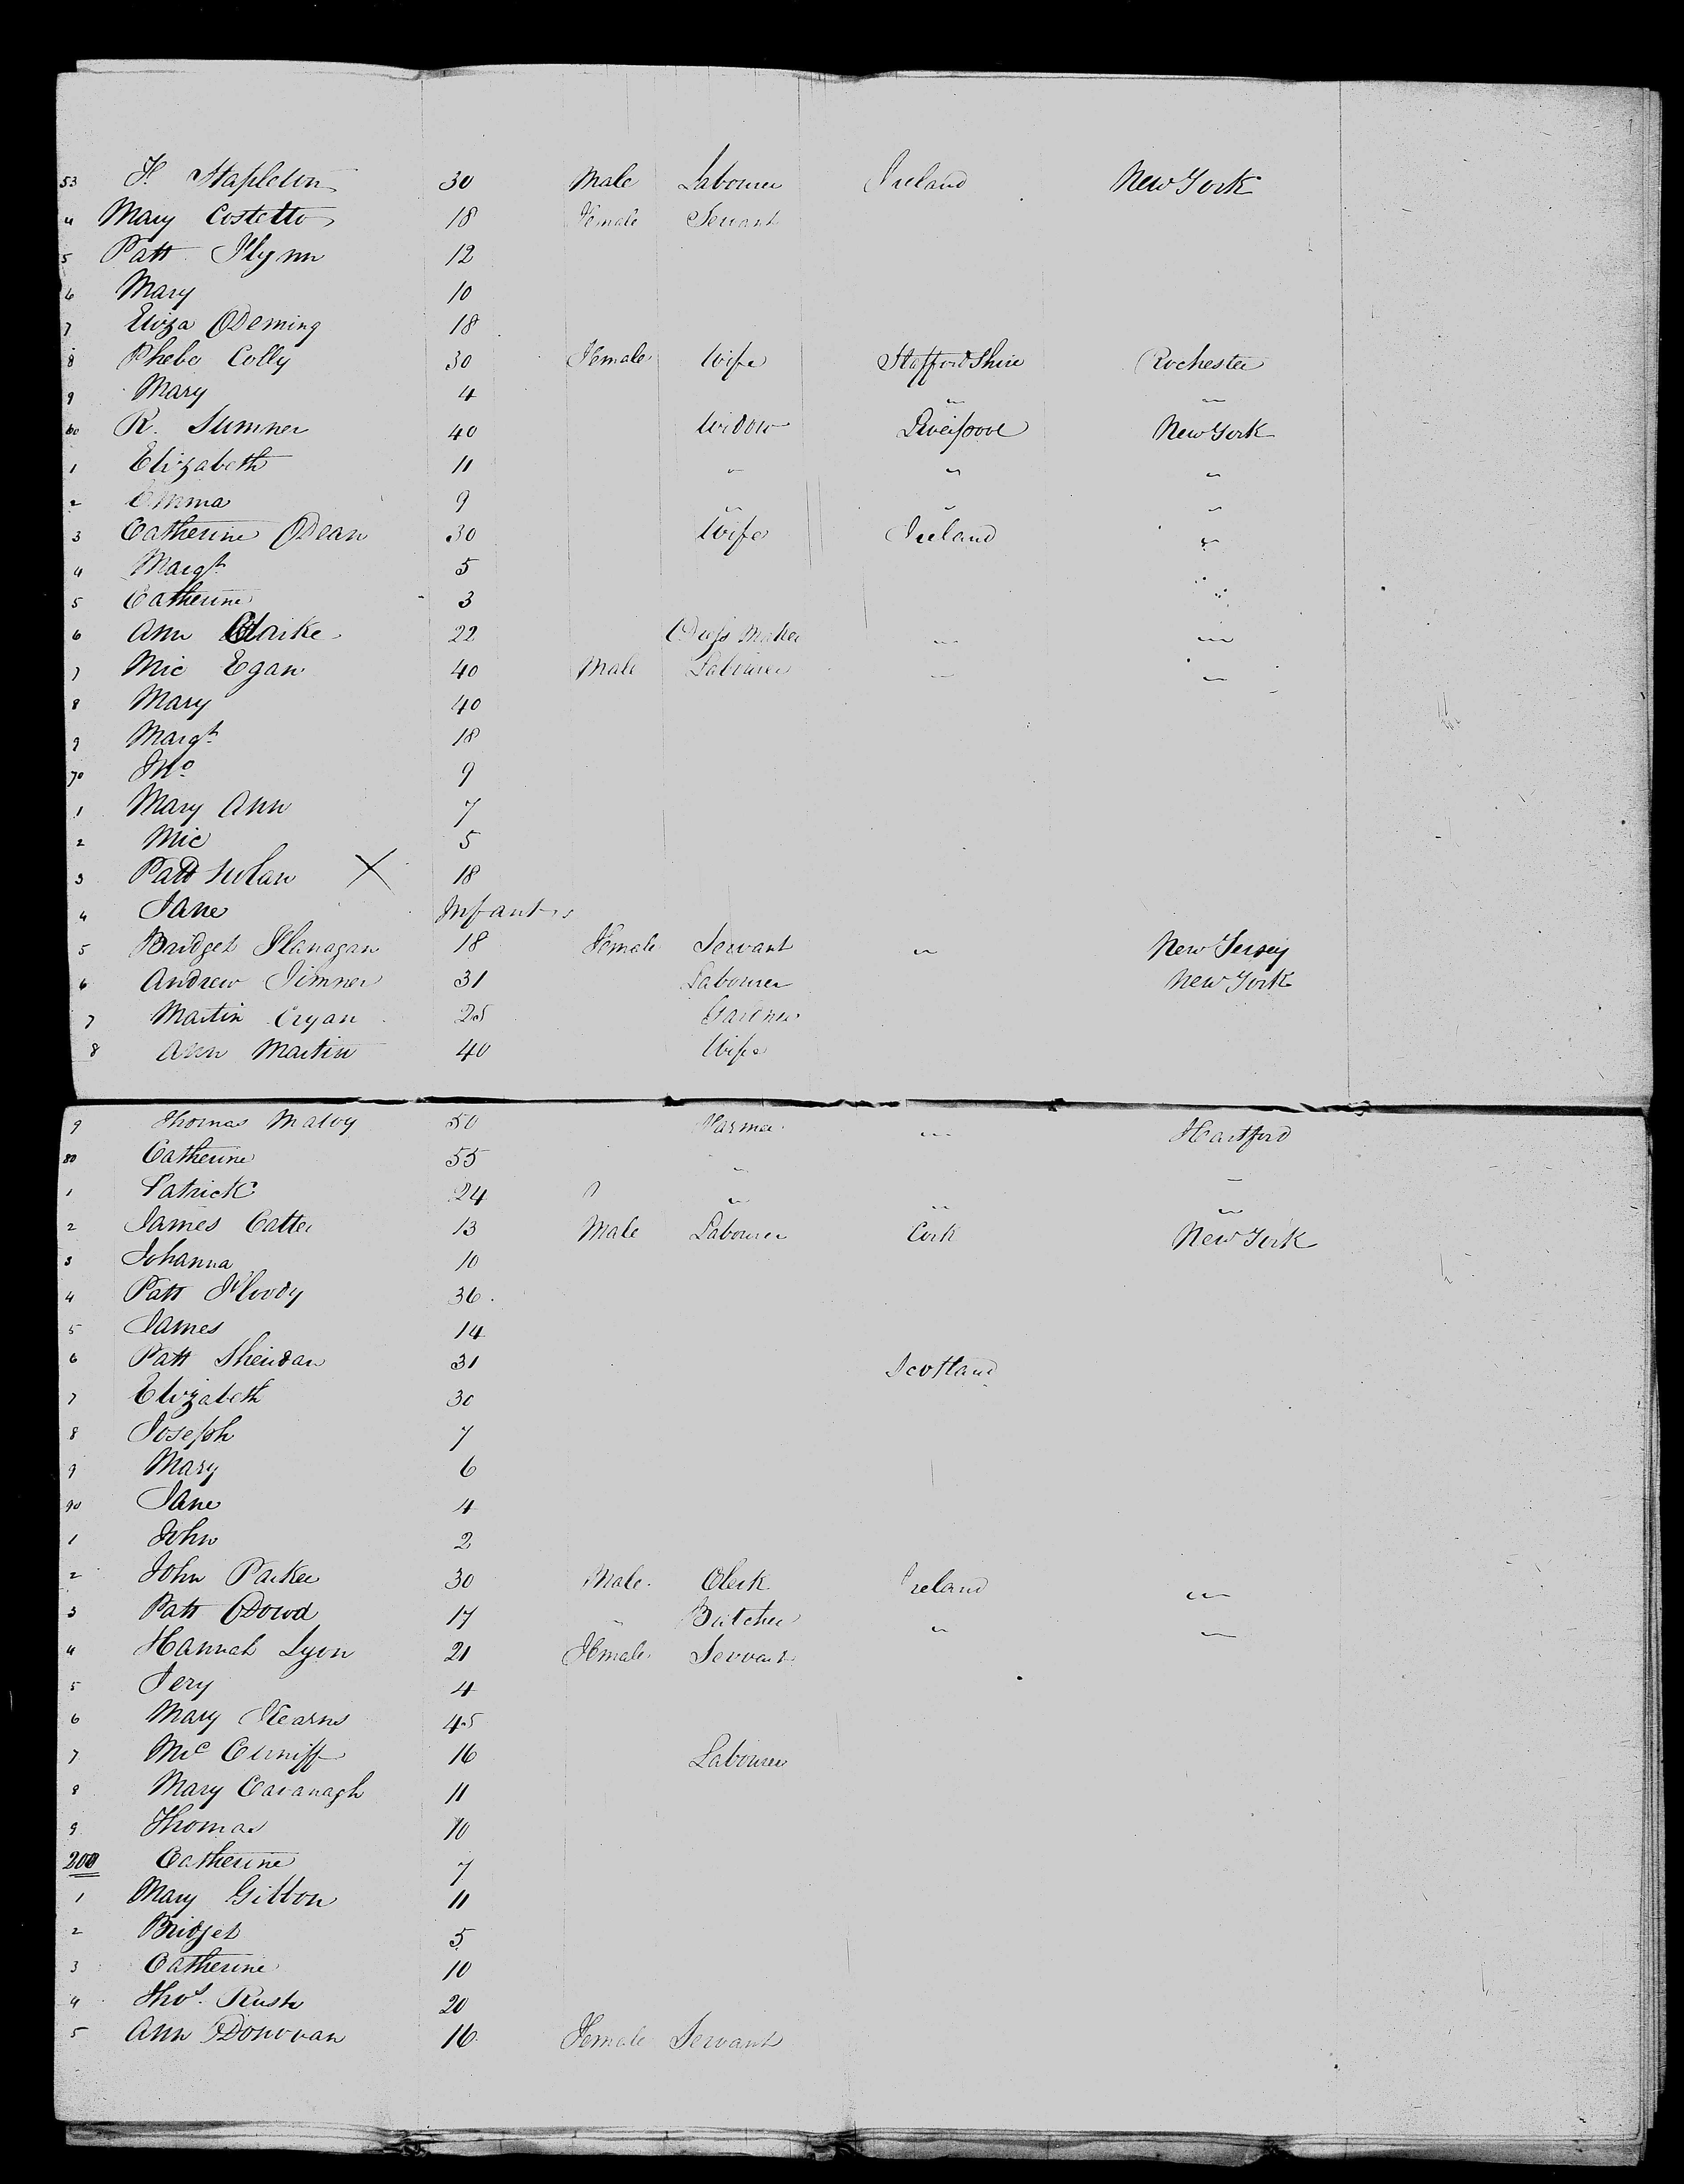 53 F. Stapleton 30 Male Labourer Ireland New York
4 Mary Costello 18 Female Servant
5 Patt Flynn 12
6 Mary 10
7 Eliza Deming 18
8 Phebe Colly 30 Female Wife StaffordShire Rochester
9 Mary 4 " "
60 R. Sumner 40 Widow Liverpool New York
1 Elizabeth 11 " " "
2 Emma 9 " " "
3 Catherine Dean 30 Wife Ireland "
4 Margt 5
5 Catherine 3
6 Ann Clarke 22 Dress Maker " "
7 Mic Egan 40 Male Labourer " "
8 Mary 40
9 Margt 18
70 Jno 9
1 Mary Ann 7
2 Mic 5
3 Patt Nolan X 18
4 Jane Infant
5 Bridget Flanagan 18 Female Servant " New Jersey
6 Andrew 31 Labourer New York
7 Martin Cryan 25 Gardner
8 Ann Martin 40 Wife
9 Thomas Malvy 50 Farmer " Hartford
80 Catherine 55 " "
1 Patrick 24 " " "
2 James Catter 13 Male Labourer Cork New York
3 Johanna 10
4 Patt Floody 36
5 James 14
6 Patt Sheridan 31 Scotland
7 Elizabeth 30
8 Joseph 7
9 Mary 6
90 Jane 4
1 John 2
2 John Parker 30 Male Clerk Ireland "
3 Patt Dowd 17 " Butcher " "
4 Hannah Lyon 21 Female Servant
5 Jery 4
6 Mary Kearns 45
7 Mic Cunniff 16 Labourer
8 Mary Cavanagh 11
9 Thomas 10
200 Catherine 7
1 Mary Gibbon 11
2 Bridget 5
3 Catherine 10
4 Thos. Rush 20
5 Ann Donovan 16 Female Servant